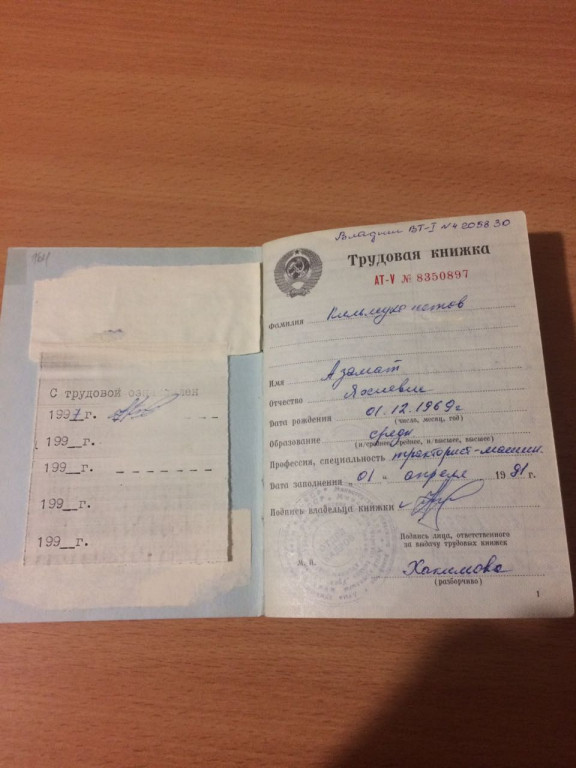 С трудовой ознакомлен
1997г.
199__г.
199__г.
199__г.
199__г.
Вкладыш ВТ-I №4205830
Трудовая книжка
АТ-V № 8350897
Фамилия
Имя Азамат
Отчество
Дата рождения 01.12.1969г
(число, месяц, год)
Образование средн
(н/среднее, среднее, н/высшее, высшее)
Профессия, специальность тракторист-машин.
Дата заполнения „ 01 “ апреля 1991 г.
Подпись владельца книжки
Подпись лица, ответственного
за выдачу трудовых книжек
М. П.
Хакимова
(разборчиво)
1